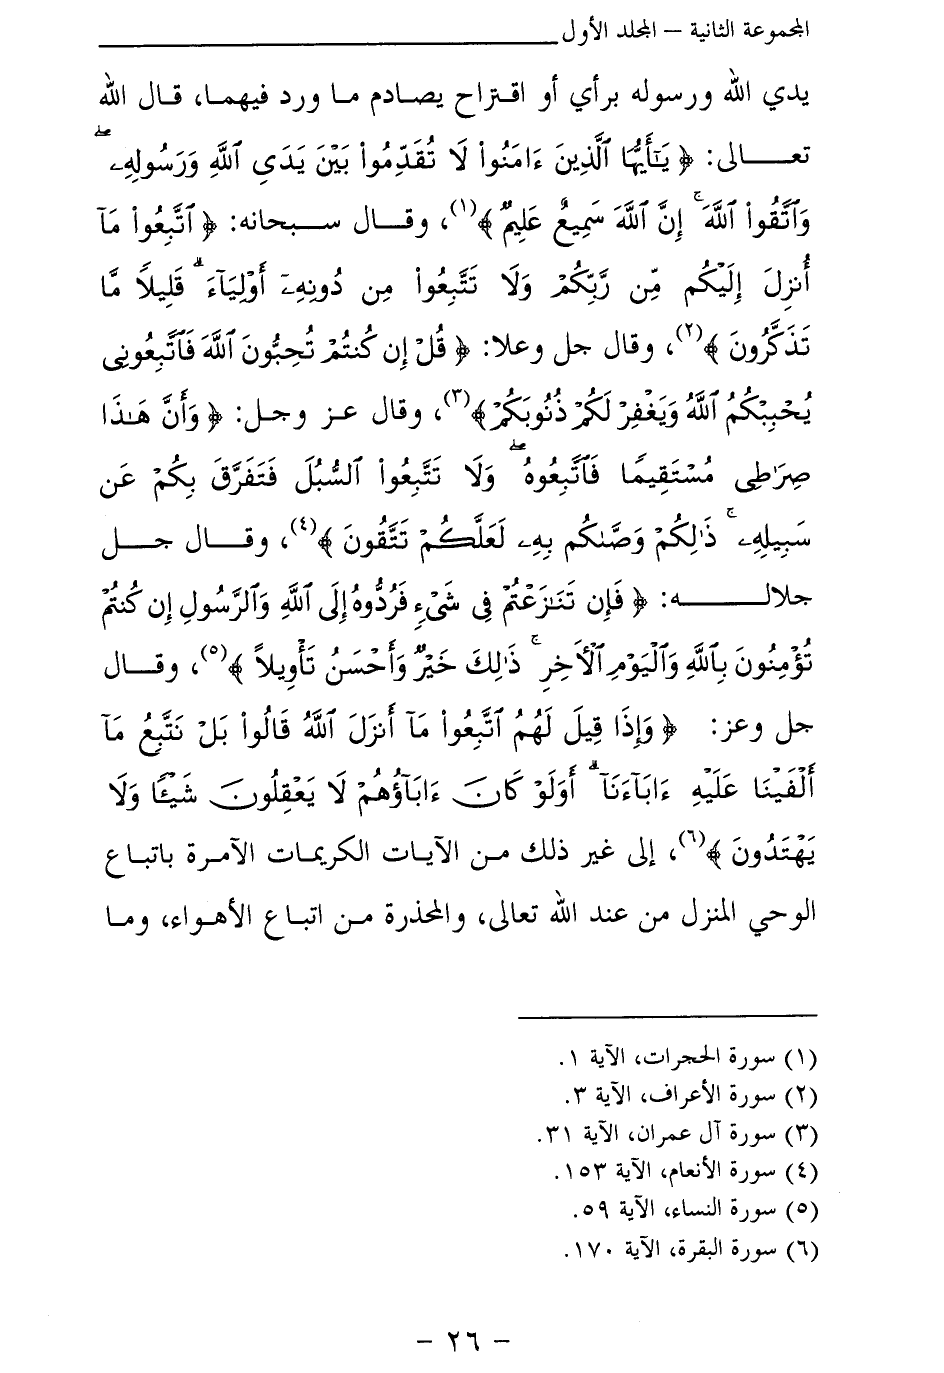 المجموعة الثانية – المجلد الأول
يدي الله ورسوله برأي أو اقتراح يصادم ما ورد فيهما، قال الله
تعالى: ﴿ يَٰٓأَيُّهَا ٱلَّذِينَ ءَامَنُوا۟ لَا تُقَدِّمُوا۟ بَيْنَ يَدَىِ ٱللَّهِ وَرَسُولِهِۦ ۖ
وَٱتَّقُوا۟ ٱللَّهَ ۚ إِنَّ ٱللَّهَ سَمِيعٌ عَلِيمٌ ﴾(١)، وقال سبحانه: ﴿ ٱتَّبِعُوا۟ مَآ
أُنزِلَ إِلَيْكُم مِّن رَّبِّكُمْ وَلَا تَتَّبِعُوا۟ مِن دُونِهِۦٓ أَوْلِيَآءَ ۗ قَلِيلًا مَّا
تَذَكَّرُونَ ﴾(٢)، وقال جل وعلا: ﴿ قُلْ إِن كُنتُمْ تُحِبُّونَ ٱللَّهَ فَٱتَّبِعُونِى
يُحْبِبْكُمُ ٱللَّهُ وَيَغْفِرْ لَكُمْ ذُنُوبَكُمْ ﴾(٣)، وقال عز وجل: ﴿ وَأَنَّ هَٰذَا
صِرَٰطِى مُسْتَقِيمًا فَٱتَّبِعُوهُ ۖ وَلَا تَتَّبِعُوا۟ ٱلسُّبُلَ فَتَفَرَّقَ بِكُمْ عَن
سَبِيلِهِۦ ۚ ذَٰلِكُمْ وَصَّىٰكُم بِهِۦ لَعَلَّكُمْ تَتَّقُونَ ﴾(٤)، وقال جل
جلاله: ﴿ فَإِن تَنَٰزَعْتُمْ فِى شَىْءٍ فَرُدُّوهُ إِلَى ٱللَّهِ وَٱلرَّسُولِ إِن كُنتُمْ
تُؤْمِنُونَ بِٱللَّهِ وَٱلْيَوْمِ ٱلْءَاخِرِ ۚ ذَٰلِكَ خَيْرٌ وَأَحْسَنُ تَأْوِيلًا ﴾(٥)، وقال
جل وعز: ﴿ وَإِذَا قِيلَ لَهُمُ ٱتَّبِعُوا۟ مَآ أَنزَلَ ٱللَّهُ قَالُوا۟ بَلْ نَتَّبِعُ مَآ
أَلْفَيْنَا عَلَيْهِ ءَابَآءَنَآ ۗ أَوَلَوْ كَانَ ءَابَآؤُهُمْ لَا يَعْقِلُونَ شَيْـًٔا وَلَا
يَهْتَدُونَ ﴾(٦)، إلى غير ذلك من الآيات الكريمات الآمرة باتباع
الوحي المنزل من عند الله تعالى، والمحذرة من اتباع الأهواء، وما
(١) سورة الحجرات، الآية ١.
(٢) سورة الأعراف، الآية ٣.
(٣) سورة آل عمران، الآية ٣١.
(٤) سورة الأنعام، الآية ١٥٣.
(٥) سورة النساء، الآية ٥٩.
(٦) سورة البقرة، الآية ١٧٠.
– ٢٦ –